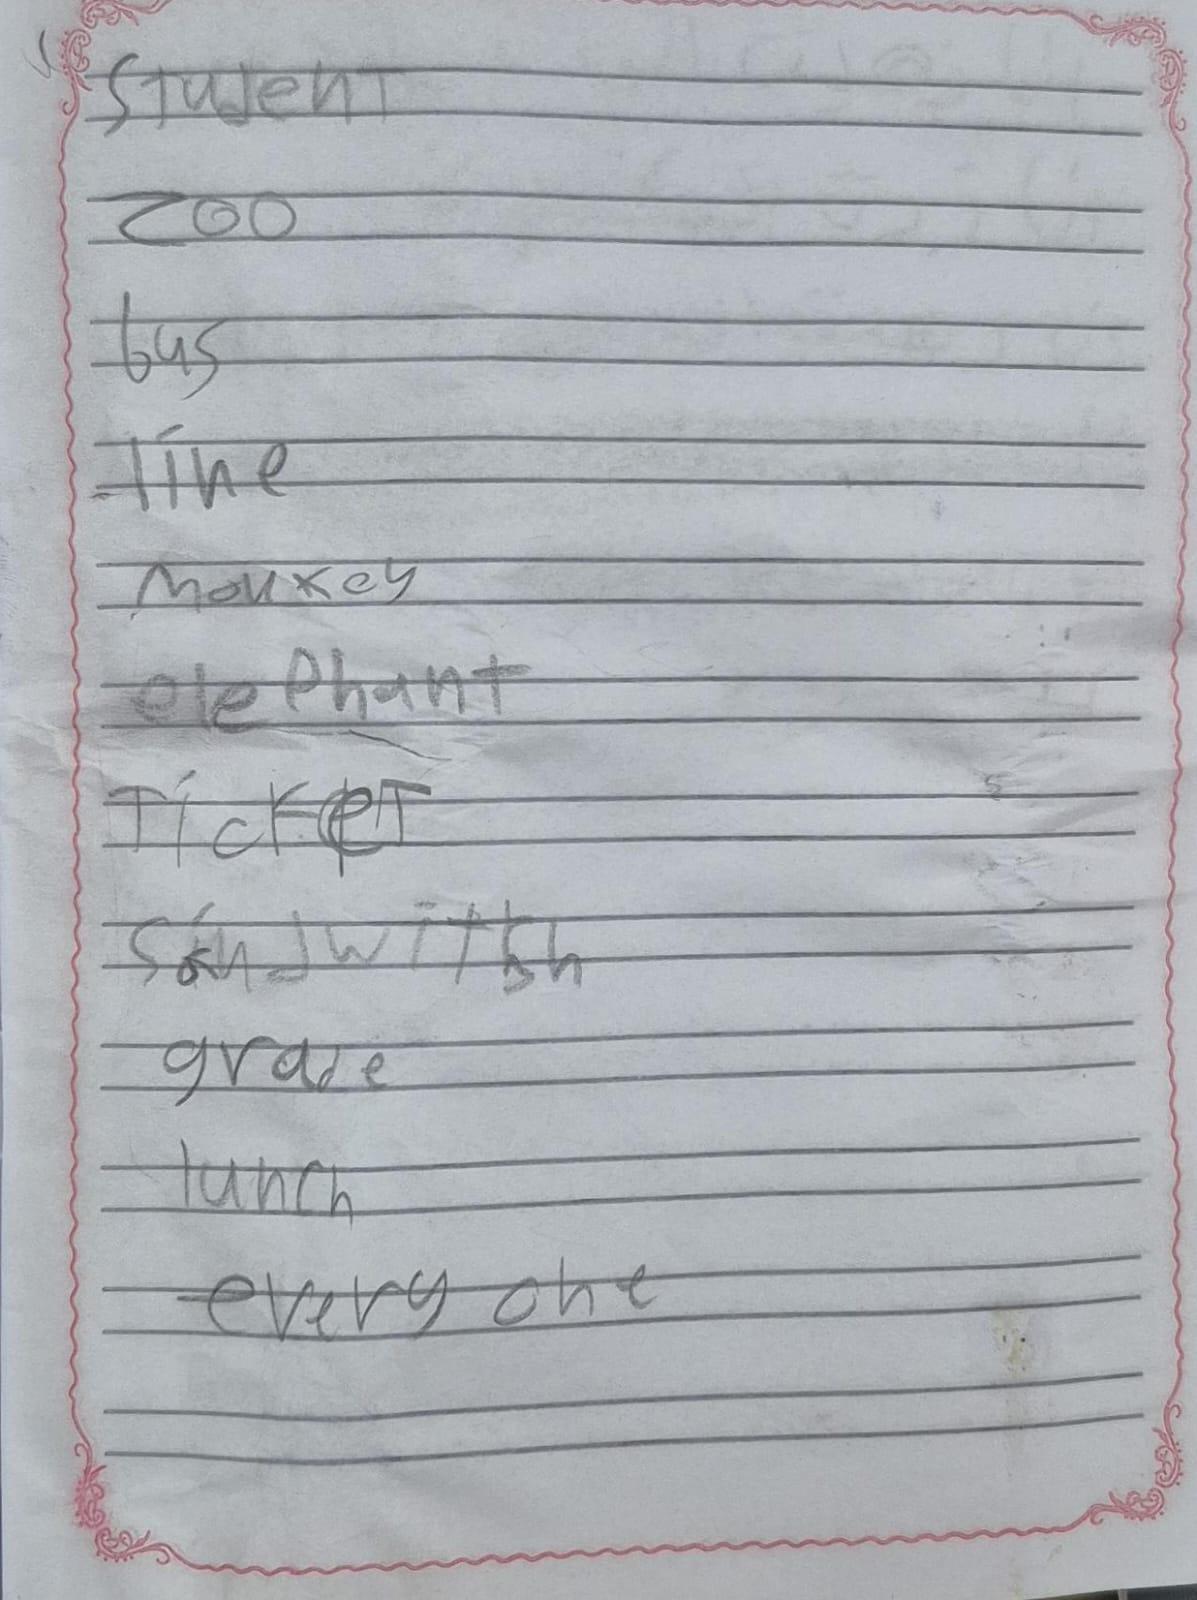 student
zoo
bus
line
monkey
elephant
TickeT
sandwitsh
grade
lunch
every one